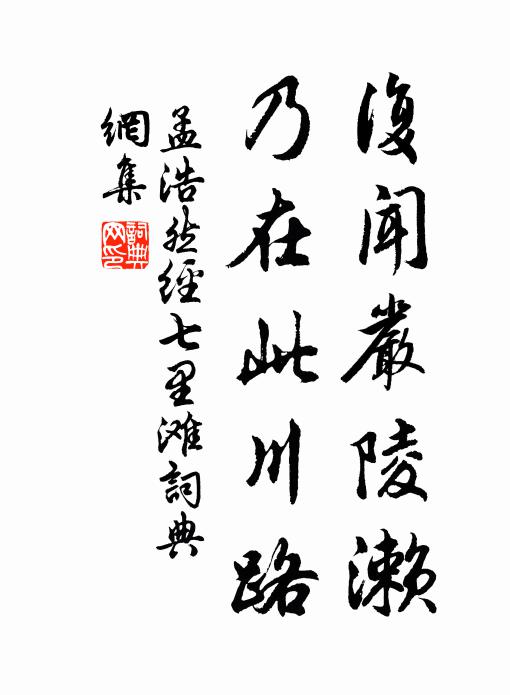 復闻嚴陵濑
乃在此川路
孟浩然經七里滩詞典
網集
詞典
网印